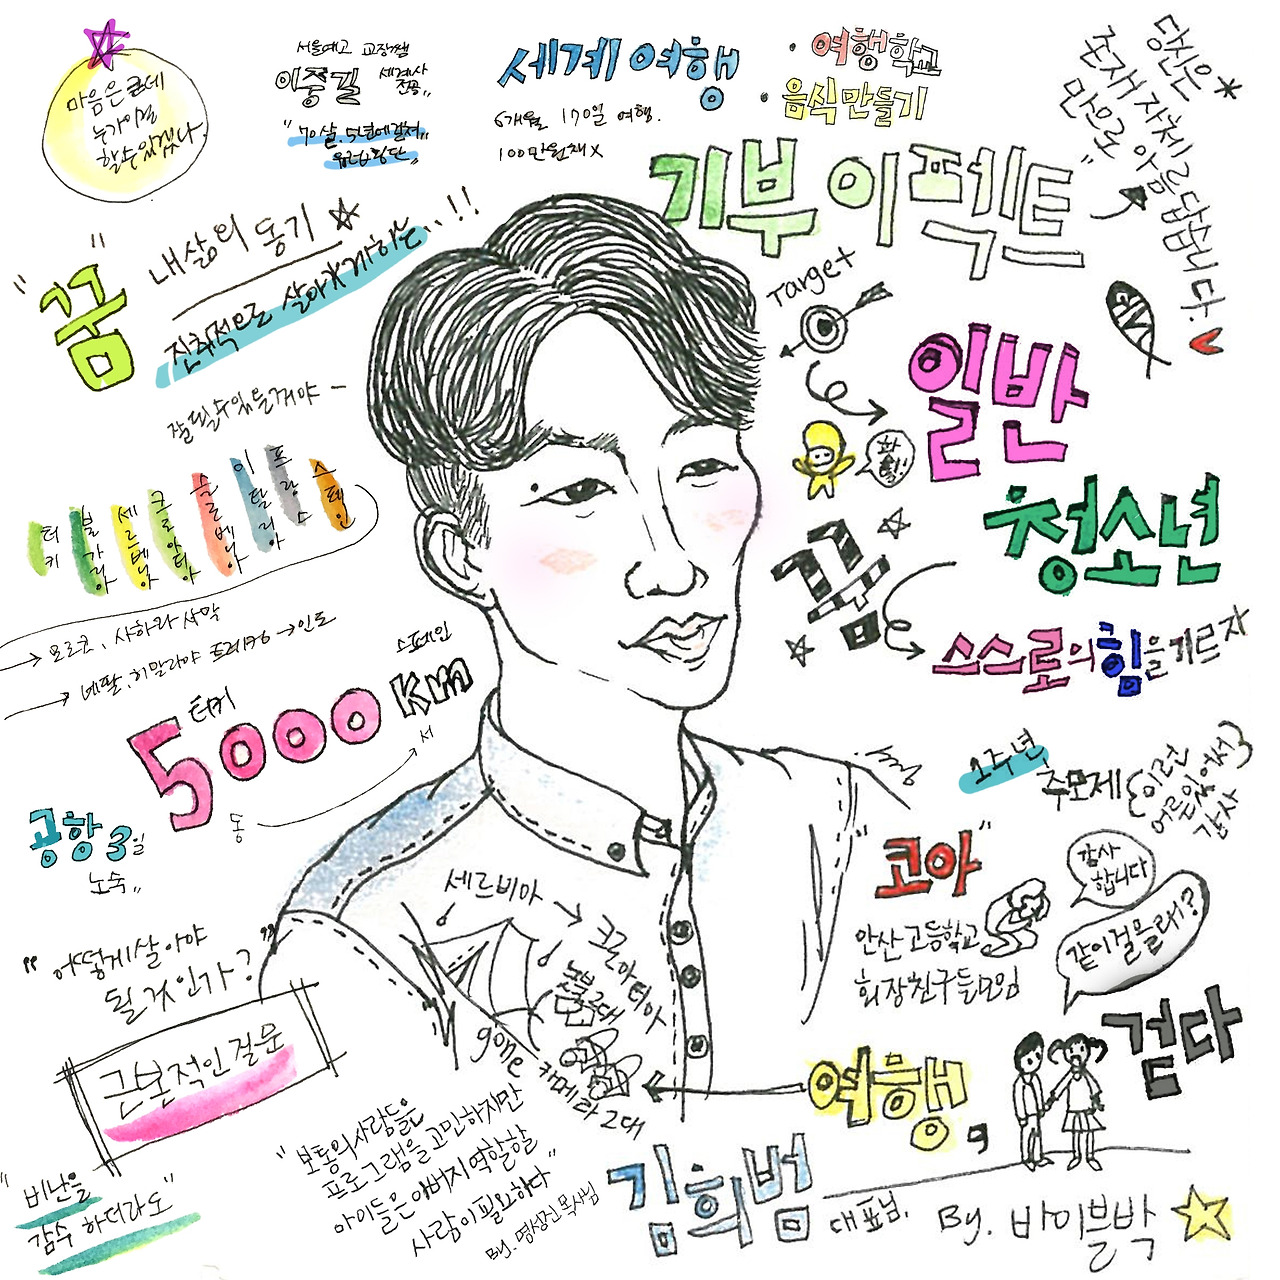 마음은 큰데
누가 이걸
할 수 있겠다.
서울예고 교장쌤
이중길 세계사 전공,,
"70살, 5년에 걸쳐,,
유럽횡단"
세계 여행
6개월 170일 여행.
100만원채 X
· 여행학교
· 음식만들기
당신은
존재 자체
만으로 아름답습니다.
기부 이펙트
"꿈"
내 삶의 동기
진취적으로 살아가게 하는..!!
잘 될 수 있을 거야 -
터키
불가리아
세르비아
크로아티아
슬로베니아
이탈리아
프랑스
스페인
→ 모로코, 사하라 사막
→ 네팔, 히말라야 트레킹 → 인도
터키
5000 km
스페인
동
서
공항 3일
노숙,,
"어떻게 살아야
될 것인가?"
근본적인 질문
"비난을
감수 하더라도"
"보통의 사람들은
프로그램을 고민하지만
아이들은 아버지 역할할
사람이 필요하다"
By. 명성진 목사님
Target
일반
청소년
꿈
스스로의 힘을 기르자
1주년
추모제
이런
어른 있어서
감사
"코아"
안산 고등학교
회장 친구들 모임
감사
합니다
같이 걸을래?
걷다
여행,
세르비아 → 크로아티아
노트북 2대
카메라 2대
gone
김희범 대표님.
By. 바이블박